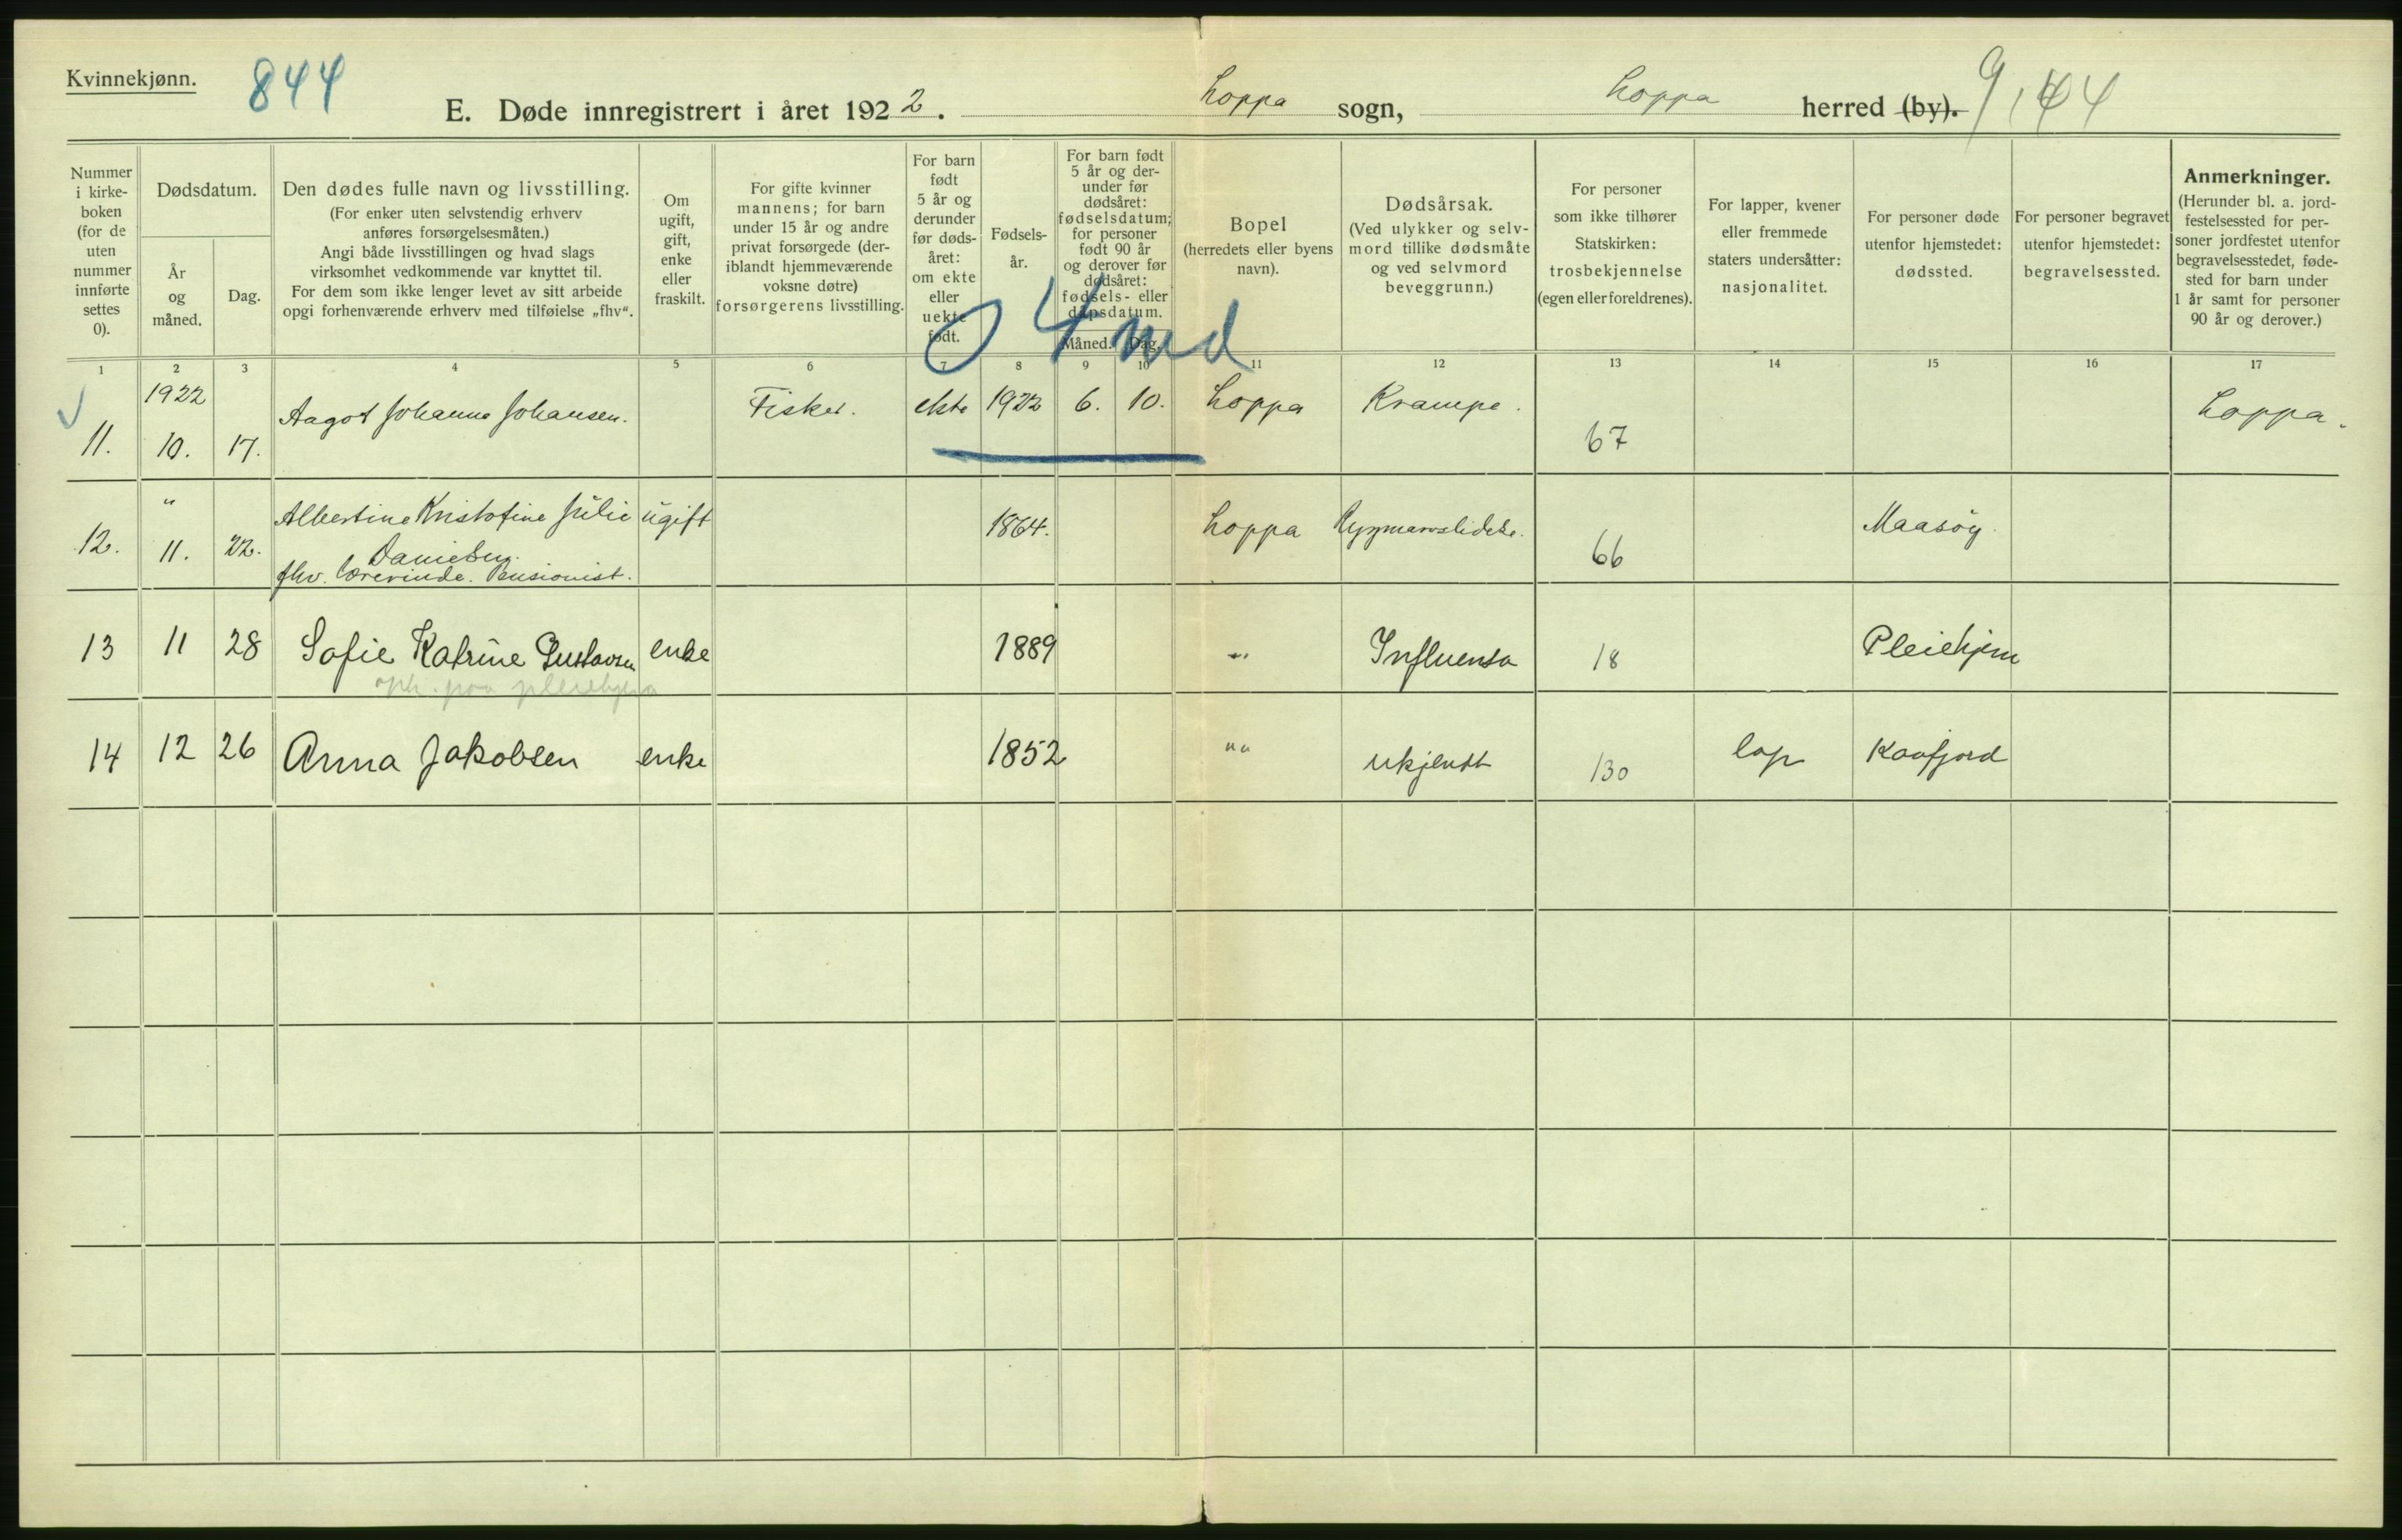 Kvinnekjønn.
844
E. Døde innregistrert i året 1922. Loppa sogn, Loppa herred (by).
Nummer i kirke- boken (for de uten nummer innførte settes 0).
Dødsdatum.
År og måned.
Dag.
Den dødes fulle navn og livsstilling.
(For enker uten selvstendig erhverv
anføres forsørgelsesmåten.)
Angi både livsstillingen og hvad slags
virksomhet vedkommende var knyttet til.
For dem som ikke lenger levet av sitt arbeide
opgi forhenværende erhverv med tilføielse „fhv“.
Om ugift, gift, enke eller fraskilt.
For gifte kvinner
mannens; for barn
under 15 år og andre
privat forsørgede (der-
iblandt hjemmeværende
voksne døtre)
forsørgerens livsstilling.
For barn født 5 år og derunder før døds- året: om ekte eller uekte født.
Fødsels- år.
For barn født
5 år og der-
under før
dødsåret:
fødselsdatum;
for personer
født 90 år
og derover før
dødsåret:
fødsels- eller
dåpsdatum.
Måned. Dag.
Bopel
(herredets eller byens
navn).
Dødsårsak.
(Ved ulykker og selv-
mord tillike dødsmåte
og ved selvmord
beveggrunn.)
For personer
som ikke tilhører
Statskirken:
trosbekjennelse
(egen eller foreldrenes).
For lapper, kvener
eller fremmede
staters undersåtter:
nasjonalitet.
For personer døde
utenfor hjemstedet:
dødssted.
For personer begravet
utenfor hjemstedet:
begravelsessted.
Anmerkninger.
(Herunder bl. a. jord-
festelsessted for per-
soner jordfestet utenfor
begravelsesstedet, føde-
sted for barn under
1 år samt for personer
90 år og derover.)
1 2 3 4 5 6 7 8 9 10 11 12 13 14 15 16 17
1922
11. 10. 17. Aagot Johanne Johansen. Fisker. ekte 1922 6. 10. Loppa Krampe. 67 Loppa.
12. " 11. 22. Albertine Kristofine Julie ugift 1864. Loppa Rygmarvslidelse. 66 Maasøy.
Danielsen.
fhv. lærerinde. Pensionist.
13 11 28 Sofie Katrine Gustavsen enke 1889 " Influensa 18 Pleiehjem
oph. paa pleiehjem
14 12 26 Anna Jakobsen enke 1852 " " ukjendt 130 lap Kaafjord